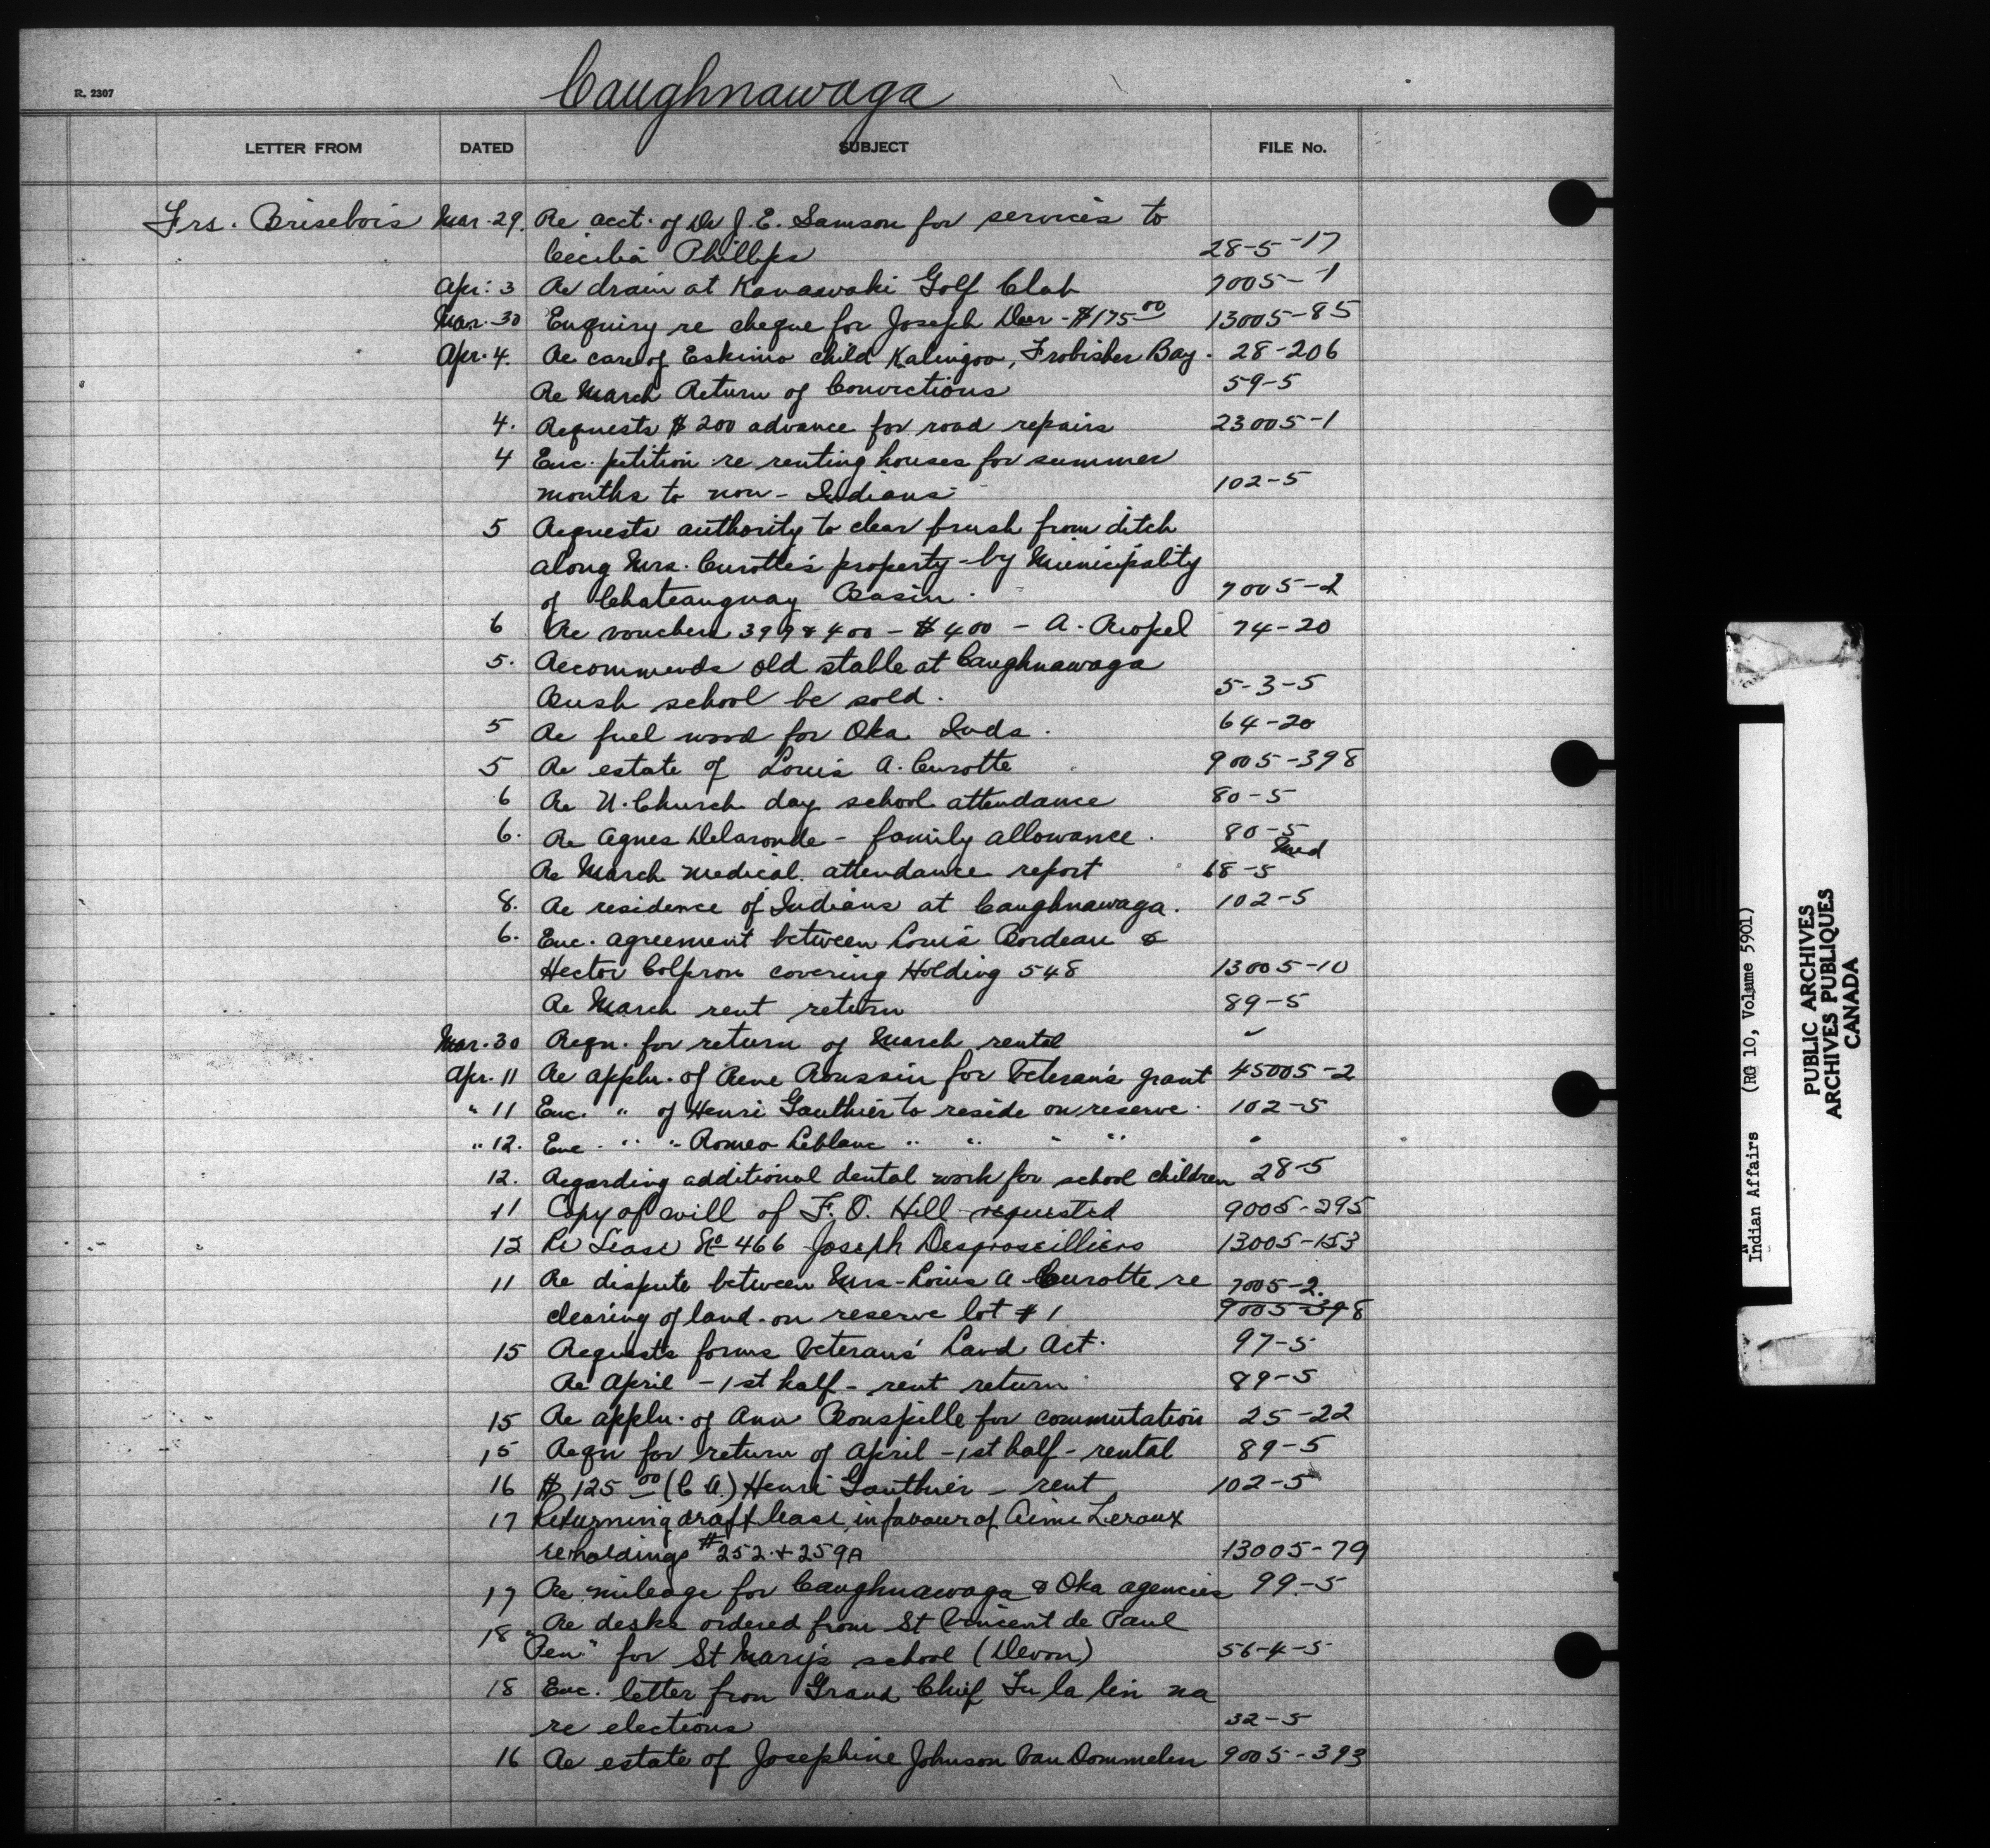 Caughnawaga
R. 2307
LETTER FROM DATED SUBJECT FILE No.
Frs. Brisebois Mar. 29. Re acct. of Dr J. E. Samson for services to
Cecilia Phillips 28-5-17
Apr. 3 Re drain at Kanawaki Golf Club 7005-1
Mar. 30 Enquiry re cheque for Joseph Deer - $175 00 13005-85
Apr. 4. Re care of Eskimo child Kalingoo, Frobisher Bay. 28-206
Re March Return of Convictions 59-5
4. Requests $200 advance for road repairs 23005-1
4 Enc. petition re renting houses for summer
months to non-Indians 102-5
5 Requests authority to clear brush from ditch
along Mrs. Curotte's property - by Municipality
of Chateauguay Basin. 7005-2
6 Re vouchers 399 & 400 - $400 - A. Riopel 74-20
5. Recommends old stable at Caughnawaga
Bush school be sold. 5-3-5
5 Re fuel wood for Oka Inds. 64-20
5 Re estate of Louis A. Curotte 9005-398
6 Re U. Church day school attendance 80-5
6. Re Agnes Delaronde - family allowance. 80-5
Med
Re March medical attendance report 68-5
8. Re residence of Indians at Caughnawaga. 102-5
6. Enc. agreement between Louis Bordeau &
Hector Colpron covering Holding 548 13005-10
Re March rent return 89-5
Mar. 30 Reqn. for return of March rental "
Apr. 11 Re appln. of Rene Roussin for Veteran's grant 45005-2
" 11 Enc. " of Henri Gauthier to reside on reserve. 102-5
" 12. Enc. " " Romeo Leblanc " " " " "
12. Regarding additional dental work for school children 28-5
11 Copy of will of F. O. Hill requested 9005-295
12 Re Lease No 466 Joseph Desgroseilliers 13005-153
11 Re dispute between Mrs. Louis A. Curotte re 7005-2.
clearing of land on reserve lot #1 9005-398
15 Requests forms Veterans' Land Act. 97-5
Re April - 1st half - rent return 89-5
15 Re appln. of Ann Bonspille for commutation 25-22
15 Reqn for return of April - 1st half - rental 89-5
16 $125 00 (C A.) Henri Gauthier - rent 102-5
17 Returning draft lease in favour of Aime Leroux
re holdings #252 + 259A 13005-79
17 Re mileage for Caughnawaga & Oka agencies 99-5
18 Re desks ordered from St Vincent de Paul
"Pen" for St Mary's school (Devon) 56-4-5
18 Enc. letter from Grand Chief
re elections 32-5
16 Re estate of Josephine Johnson Van Dommelen 9005-393
Indian Affairs (RG 10, Volume 5901)
PUBLIC ARCHIVES
ARCHIVES PUBLIQUES
CANADA